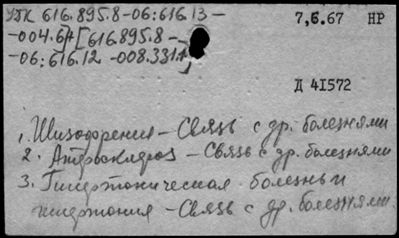 УДК 616.895.8-06:616.13-
7,6.67 НР
-004.6)[616.895.8-
-06:616.12-008.331.1]
Д 41572
1. Шизофрения - Связь с др. болезнями
2. Атеросклероз - Связь с др. болезнями
3. Гипертоническая болезнь и
гипертония - Связь с др. болезнями.